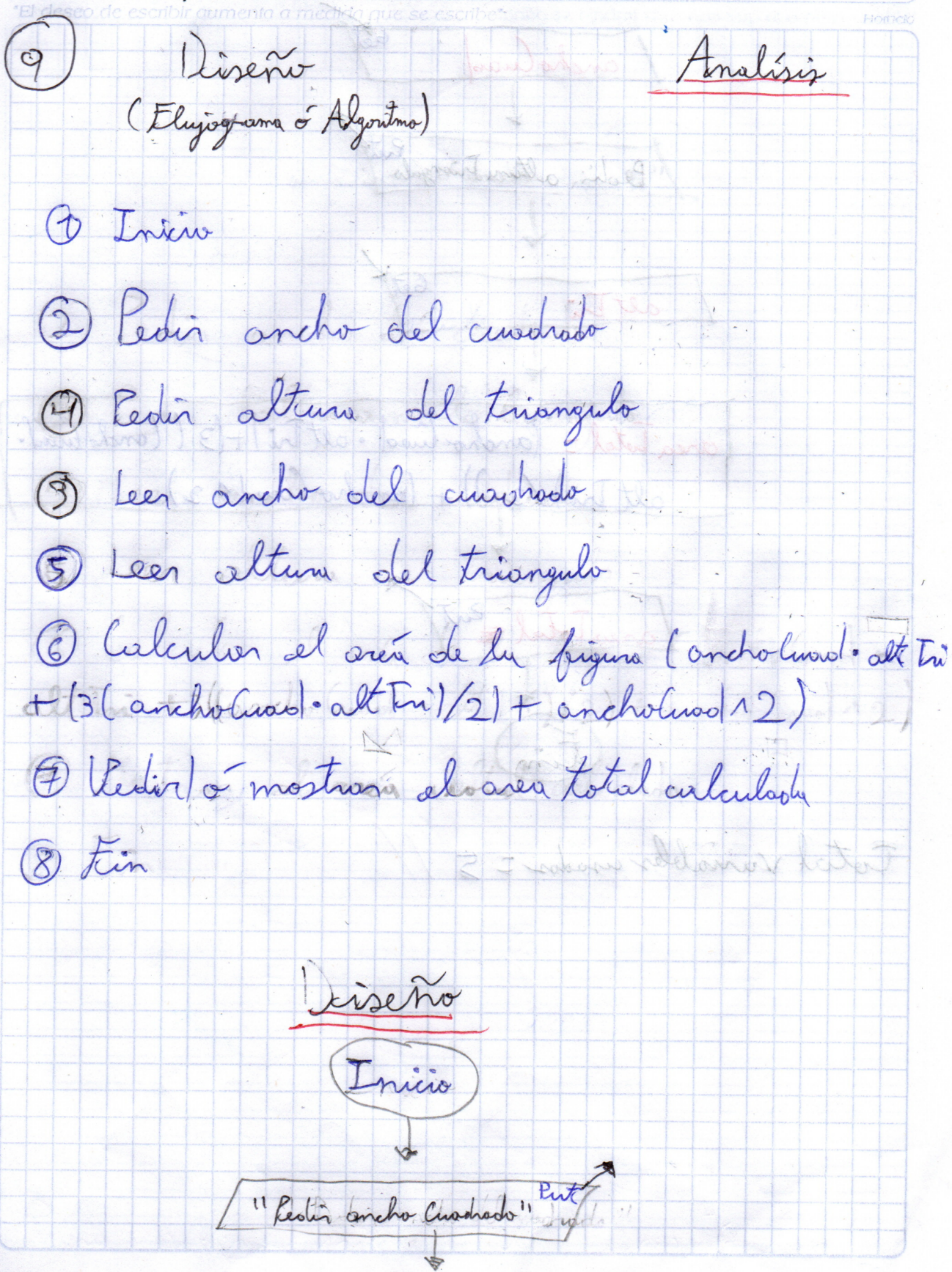 "El deseo de escribir aumenta a medida que se escribe"
9 Diseño Analísis
(Flujograma ó Algoritmo)
1 Inicio
2 Pedir ancho del cuadrado
4 Pedir altura del triangulo
3 Leer ancho del cuadrado
5 Leer altura del triangulo
6 Calcular el areá de la figura (anchoCuad · altTri
+ (3(anchoCuad · altTri)/2) + anchoCuad^2)
7 Pedir/ó mostrar el area total calculada
8 Fin
Diseño
Inicio
"Pedir ancho Cuadrado" Put